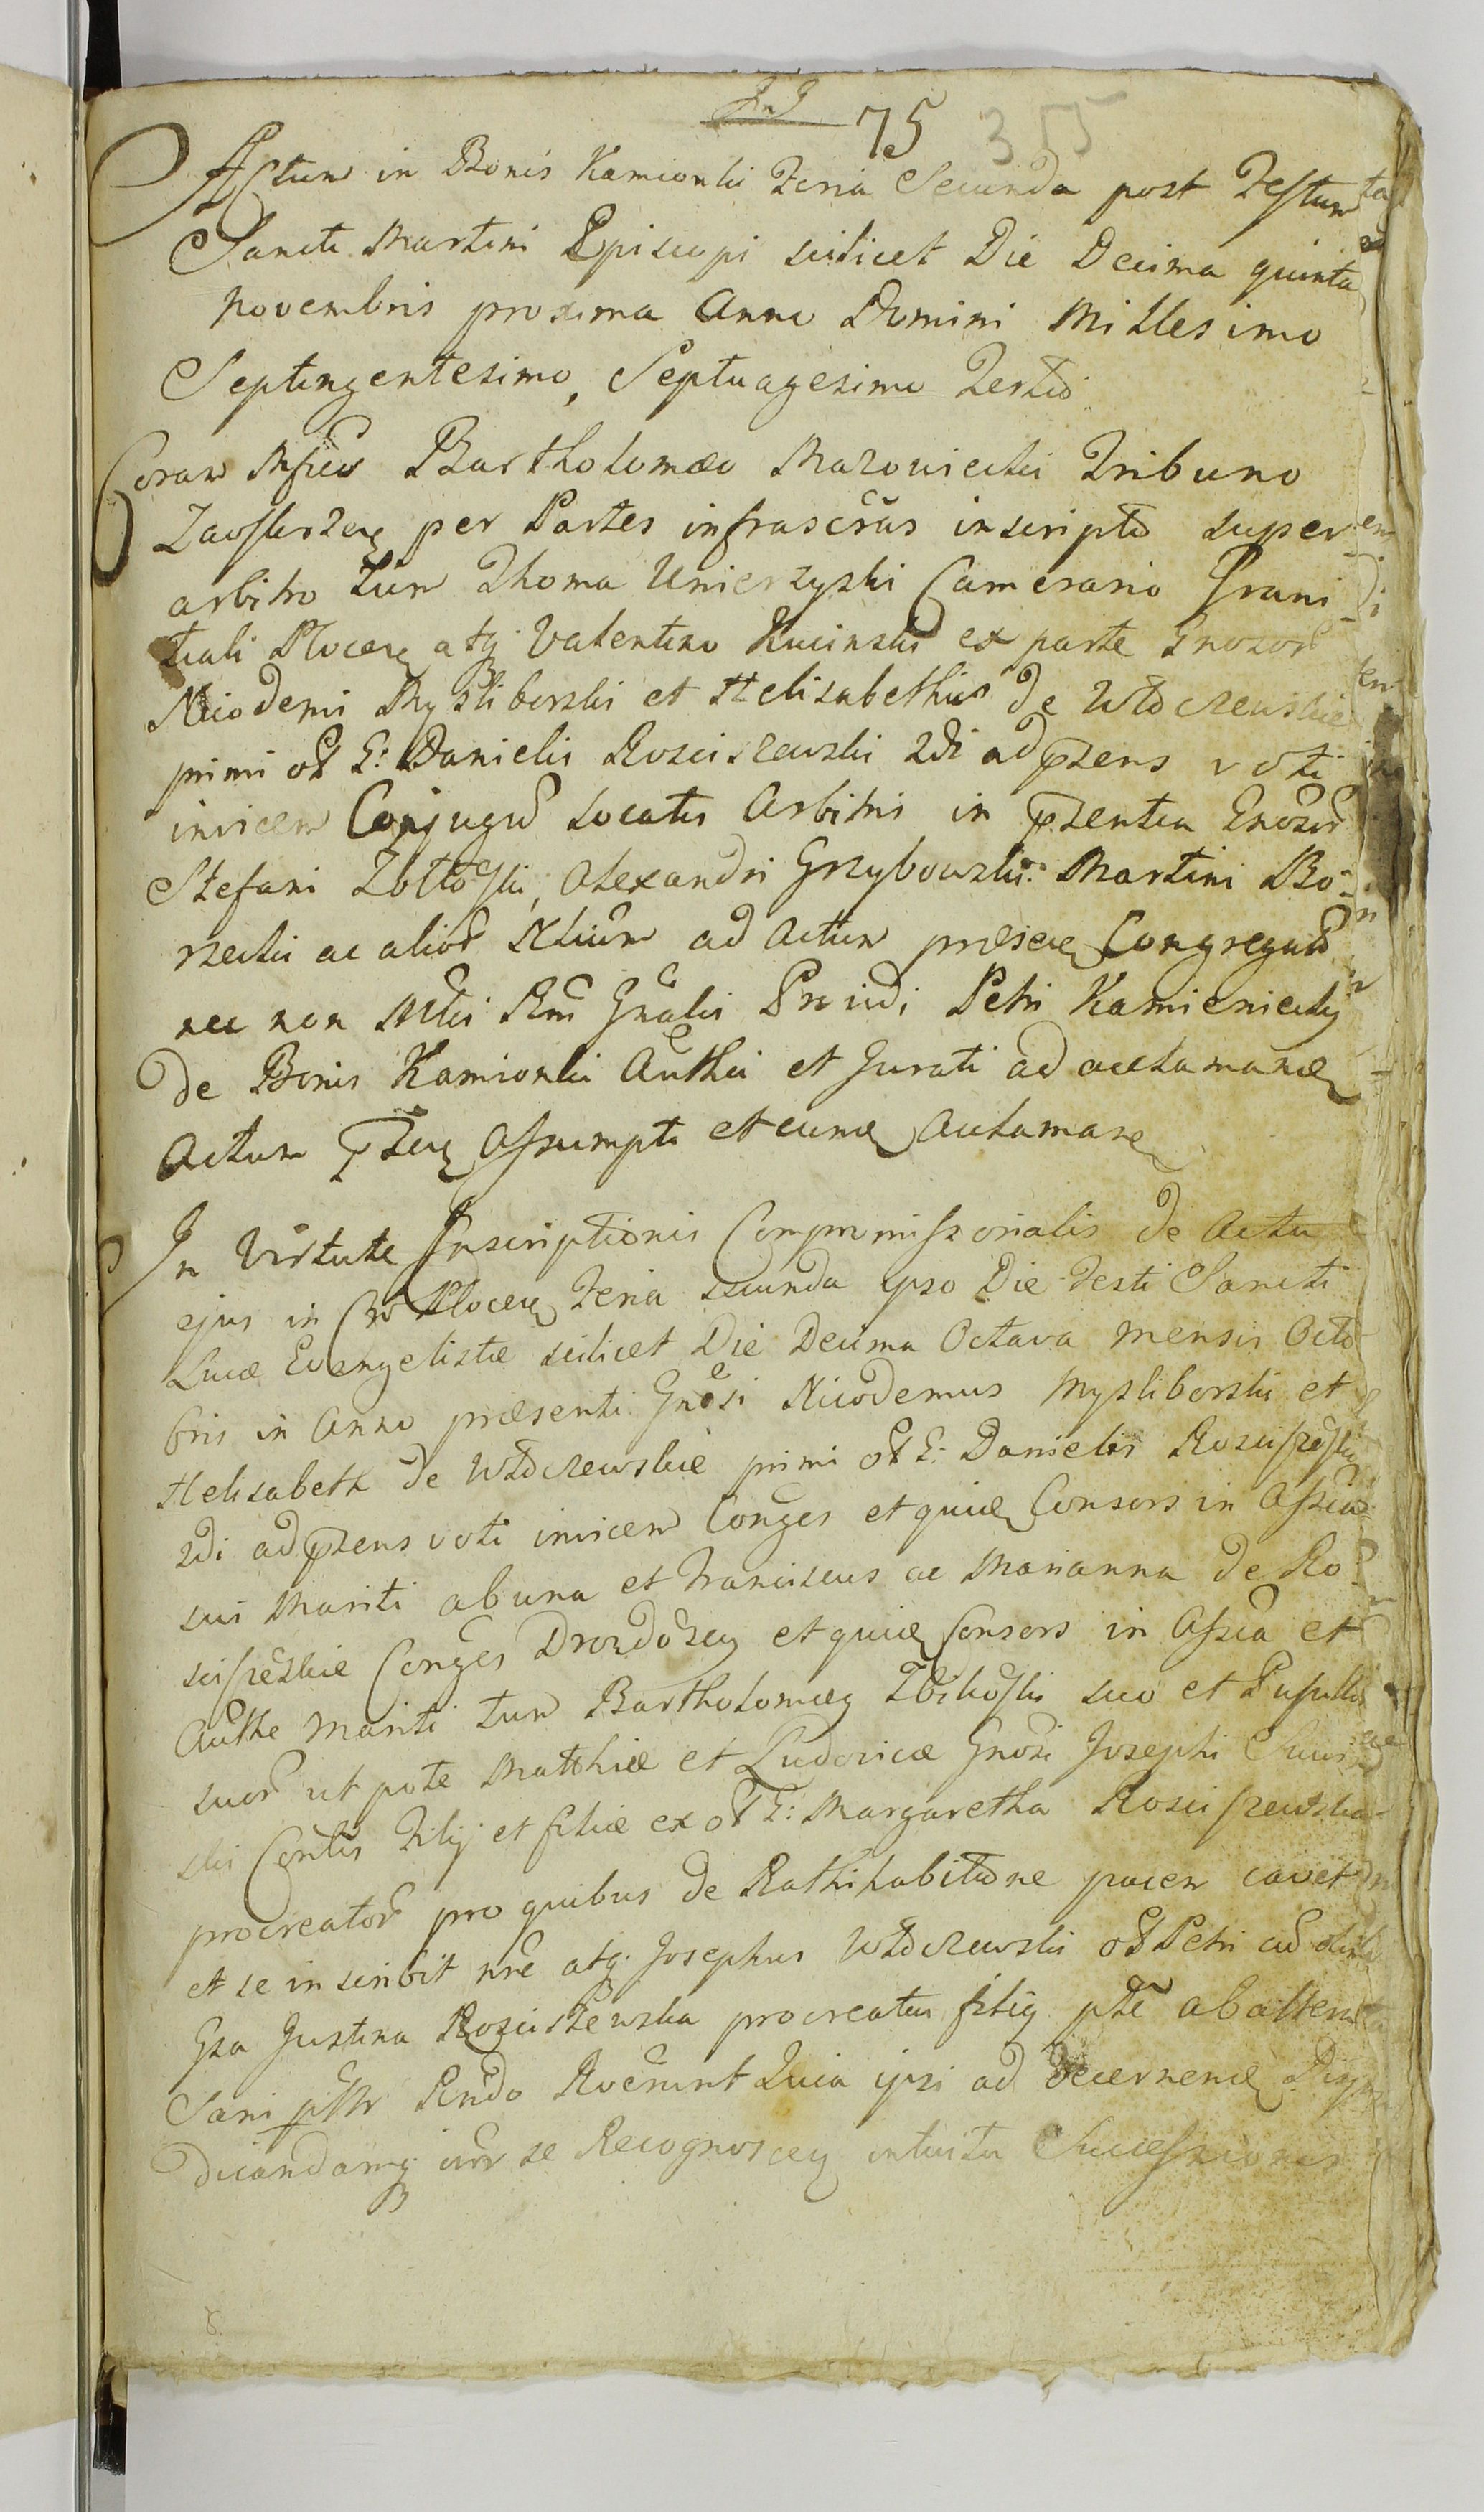 75 355
Actum in Bonis Kamionki Feria Secunda post Festum
Sancti Martini Episcopi scilicet Die Decima quinta
Novembris proxima Anno Domini Millesimo
Septingentesimo, Septuagesimo Tertio
Coram Mfico Bartholomæo Mazowiecki Tribuno
Zawskrzen per Partes infrascras inscripto super
arbitro tum Thoma Unierzyski Camerario Grani
tiali Plocen atq Valentino Kucinski ex parte Gnosor
Nicodemi Mysliborski et Helisabethæ de Włoczewskie
primi ol G: Danielis Rosciszewski 2di ad pzens voti
invicem Conjugu locatis Arbitris in pzentia Gnosor
Stefani Zołtoski, Alexandri Grzybowski Martini Bo-
rzecki ac alior Nlium ad Actum præsen Congregator
nec non Mtli Rni Gnalis Providi Petri Kamienicki
de Bonis Kamionki Authci et Jurati ad acclamand
Actum pzen Assumpti et eund Aclaman
In Virtute Inscriptionis Compromissorialis de Actu
ejus in Cro Plocen Feria secunda ipso Die Festi Sancti
Lucæ Evangelistæ scilicet Die Decima Octava mensis Octo
bris in Anno præsenti Gnosi Nicodemus Mysliborski et
Helisabeth de Włoczewskie primi ol G: Danielis Rosciszeski
2di ad pzens voti invicem Conges et quid Consors in Assia
sui Mariti ab una et Franciscus ac Marianna de Ro
sciszeskie Conges Drozdozen et quid Consors in Assia et
Authe Mariti tum Bartholomæg Zbikoski suo et Pupillor
suor ut pote Matthiæ et Ludovicæ Gnosi Josephi Suwin
ski Contis Filij et filiæ ex ol G: Margaretha Rosciszewska
procreator pro quibus de Rathihabitione pacem cavet
et se inscribit nre atq Josephus Włoczewski ol Petri cum olim
Gsa Justina Rosciszewska procreatus filig pte ab altera
Sani pttr Lendo Rocerunt Quia ipsi ad decernend
dicandamq inr se Recognoscen intuitu Successionis